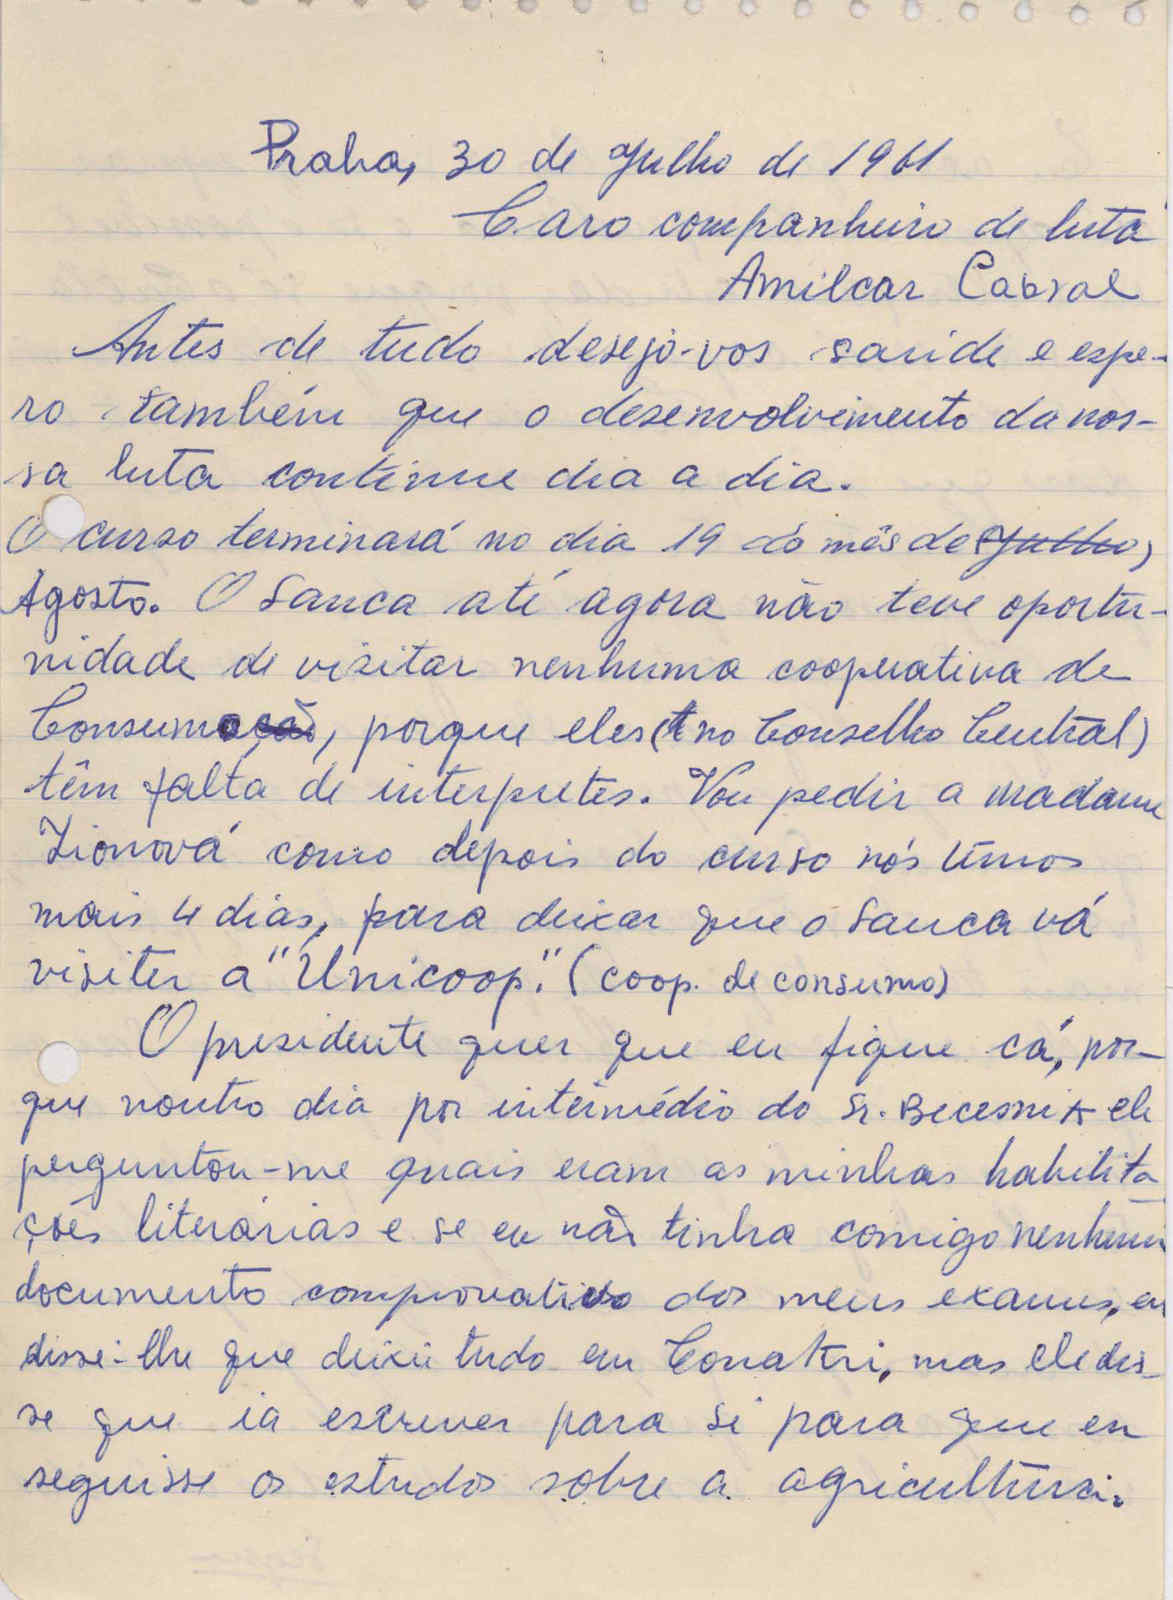 Praha, 30 de Julho de 1961
Caro companheiro de luta
Amilcar Cabral
Antes de tudo desejo-vos saúde e espe-
ro também que o desenvolvimento da nos-
sa luta continue dia a dia.
O curso terminará no dia 19 do mês de Julho,
Agosto. O Sanca até agora não teve oportu-
nidade de visitar nenhuma cooperativa de
Consumoção, porque eles (no Conselho Central)
têm falta de interpretes. Vou pedir a madame
Zionová como depois do curso nós temos
mais 4 dias, para deixar que o Sanca vá
visiter a "Unicoop." (coop. de consumo)
O presidente quer que eu fique cá, por-
que noutro dia por intermédio do Sr. ele
perguntou-me quais eram as minhas habilita-
ções literárias e se eu não tinha comigo nenhum
documento comprovativo dos meus exames, eu
disse-lhe que deixei tudo em Conakri, mas ele dis-
se que ia escrever para si para que eu
seguisse os estudos sobre a agricultura.